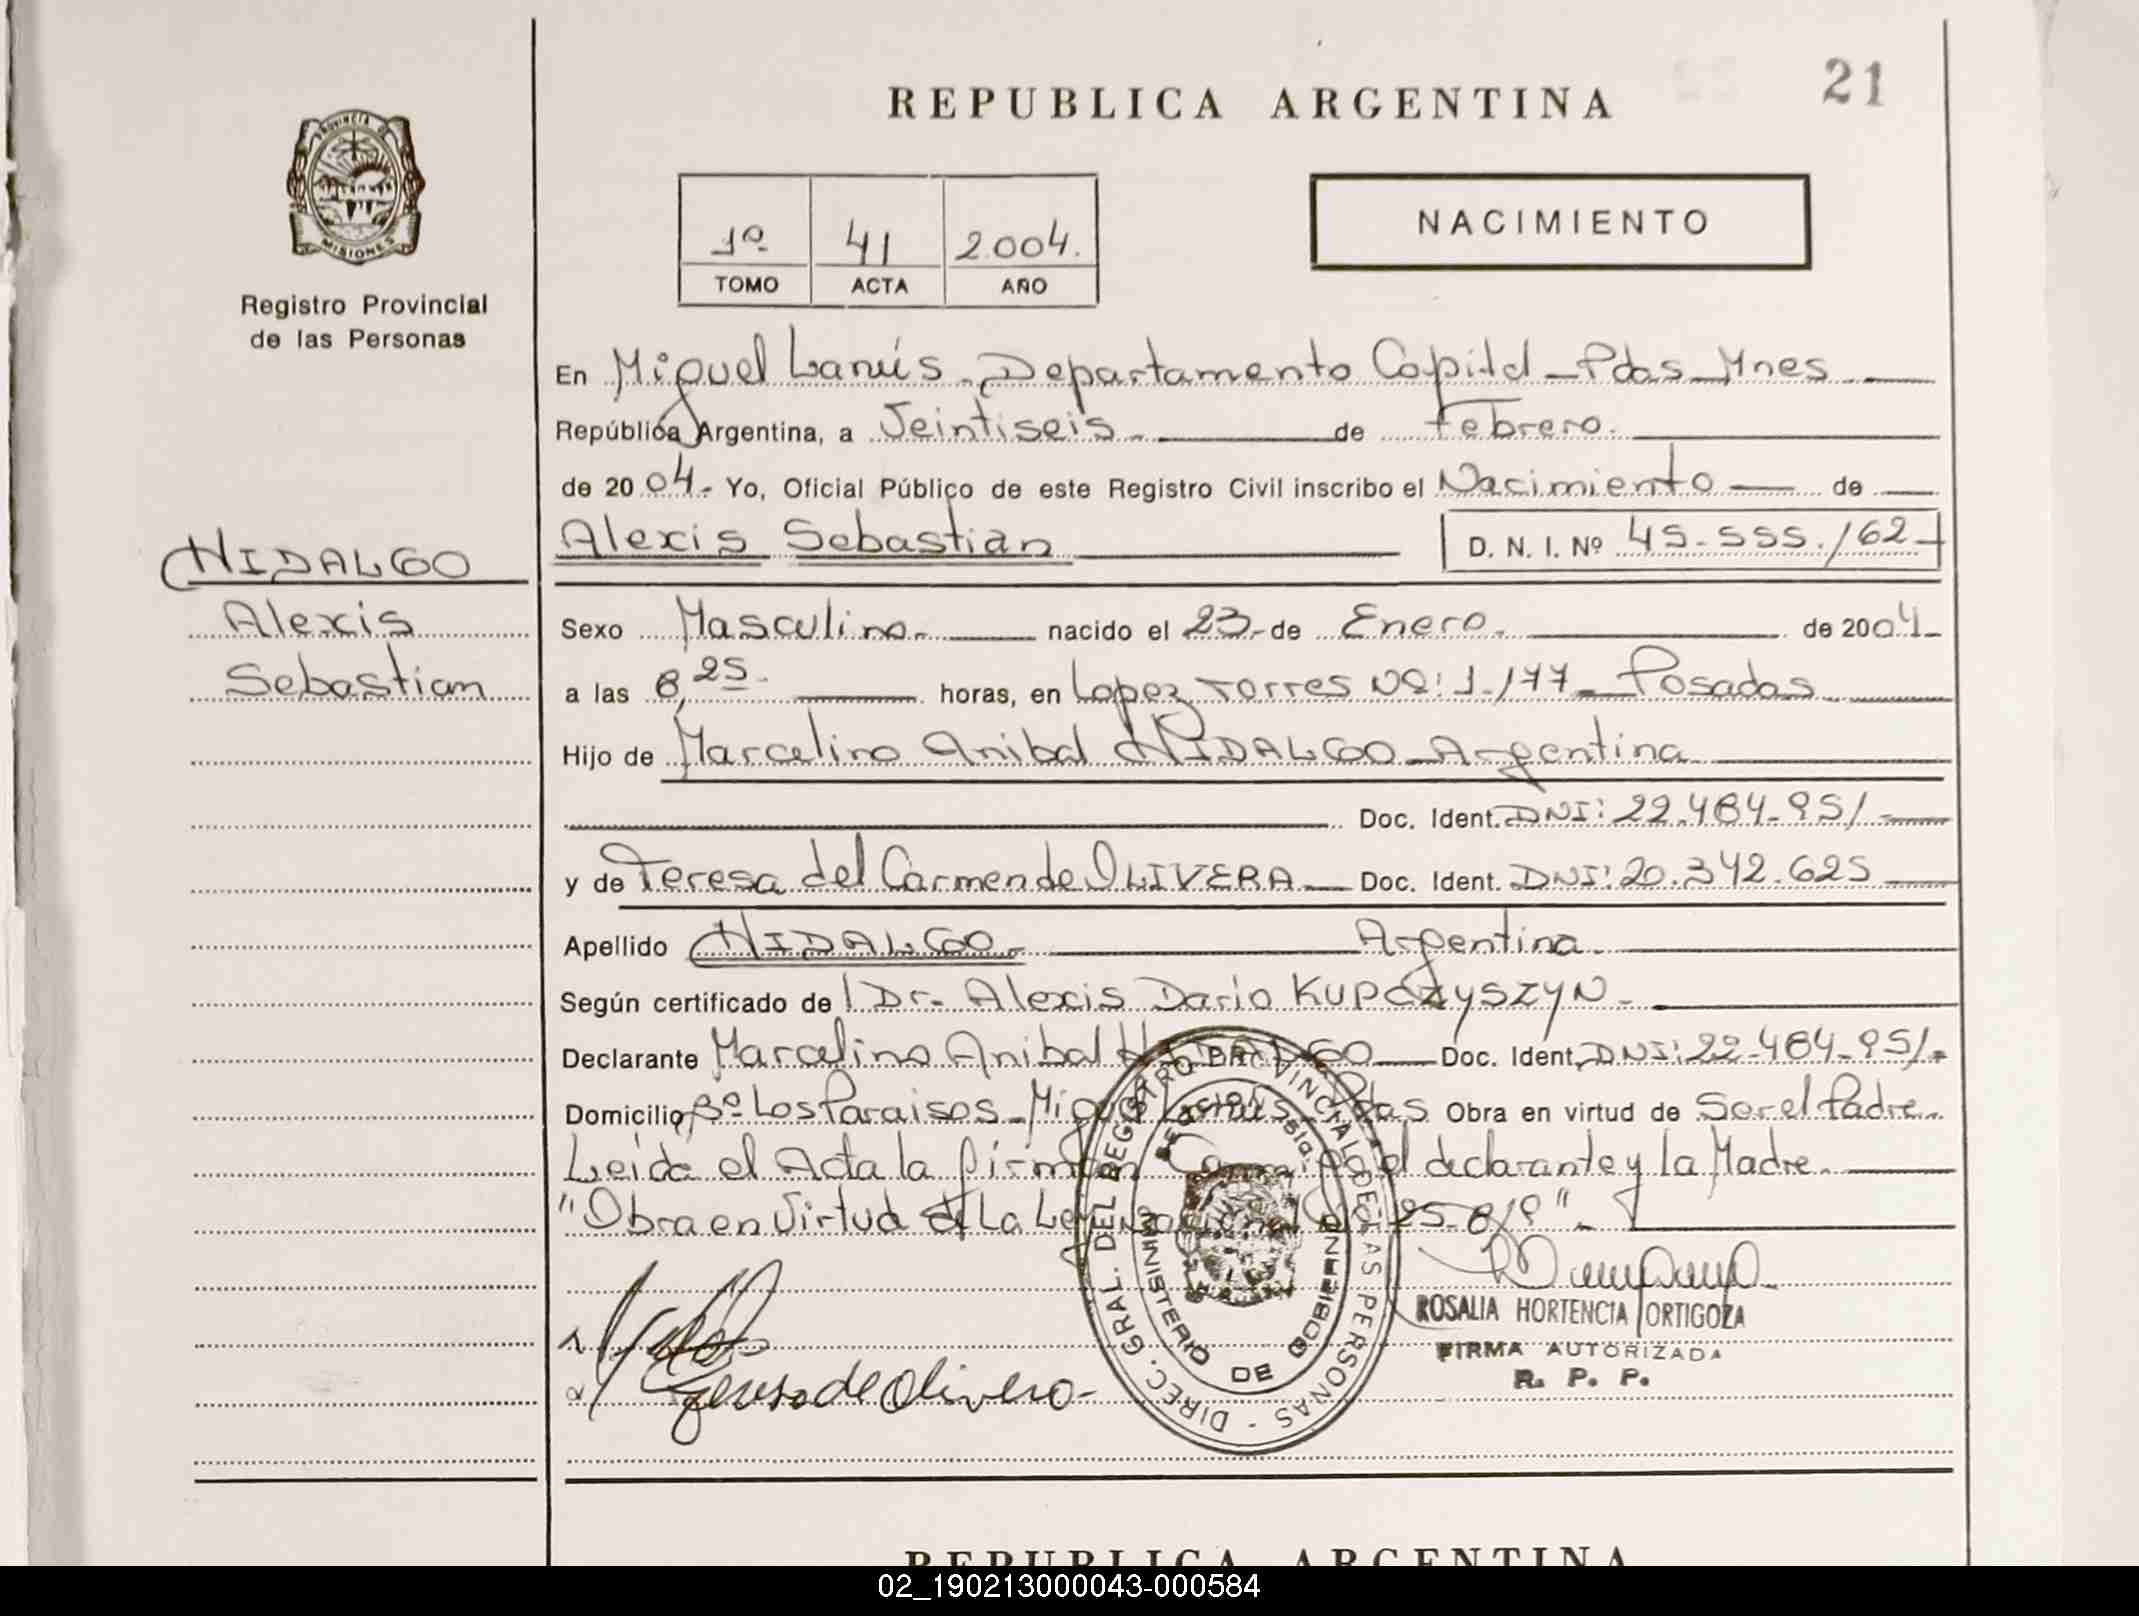 REPUBLICA ARGENTINA
21
PROVINCIA DE
MISIONES
Registro Provincial
de las Personas
1º 41 2.004.
TOMO ACTA AÑO
NACIMIENTO
En Miguel Lanús - Departamento Capital - Pdas - Mnes
República Argentina, a Veintiseis - de Febrero.
de 2004.- Yo, Oficial Público de este Registro Civil inscribo el Nacimiento de
HIDALGO
Alexis
Sebastian
Alexis Sebastián
D. N. I. Nº 45.555.162
Sexo Masculino. nacido el 23 de Enero. de 2004
a las 8,25 horas, en Lopez Torres Nº: 1.177 - Posadas
Hijo de Marcelino Anibal HIDALGO - Argentina
Doc. Ident. DNI: 22.484.951
y de Teresa del Carmen de OLIVERA Doc. Ident. DNI: 20.342.625
Apellido HIDALGO. Argentina.
Según certificado del Dr. Alexis Dario KUPCZYSZYN -
Declarante Marcelino Anibal HIDALGO Doc. Ident. DNI: 22.484.951.
Domicilio Bº Los Paraisos - Miguel Lanús - Pdas Obra en virtud de Ser el Padre.
Leida el Acta la firman Conmigo el declarante y la Madre.
"Obra en Virtud de La Ley Nacional Nº 25.819".
DIREC. GRAL. DEL REGISTRO PROVINCIAL DE LAS PERSONAS
MINISTERIO DE GOBIERNO
Teresa de Olivera
ROSALIA HORTENCIA ORTIGOZA
FIRMA AUTORIZADA
R. P. P.
REPUBLICA ARGENTINA
02_190213000043-000584